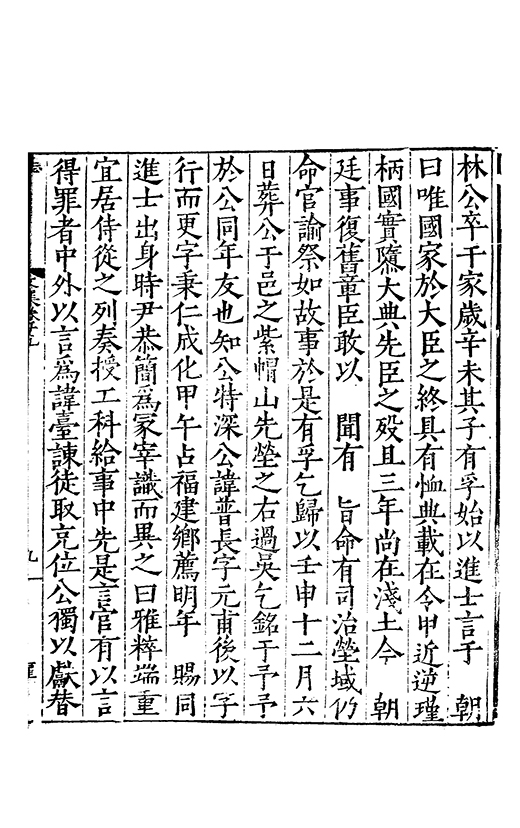 林公卒于家歲辛未其子有孚始以進士言于　朝
曰唯國家於大臣之終具有恤典載在令甲近逆瑾
柄國實隳大典先臣之殁且三年尚在淺土今　朝
廷事復舊章臣敢以　聞有　旨命有司治塋域仍
命官諭祭如故事於是有孚乞歸以壬申十二月六
日葬公于邑之紫帽山先塋之右過吳乞銘于予予
於公同年友也知公特深公諱普長字元甫後以字
行而更字秉仁成化甲午占福建鄉薦明年　賜同
進士出身時尹恭簡爲冢宰識而異之曰雅粹端重
宜居侍從之列奏授工科給事中先是言官有以言
得罪者中外以言爲諱臺諫徒取充位公獨以獻替
九